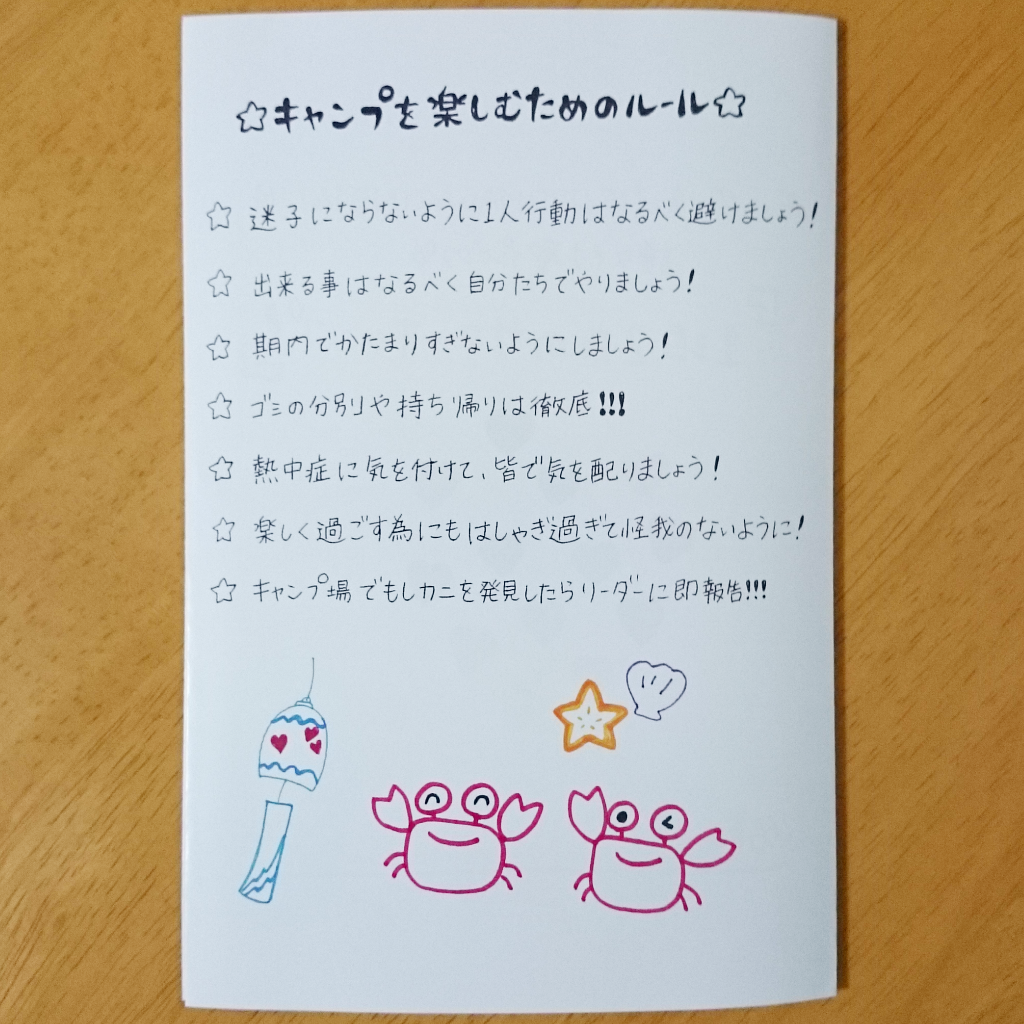 ☆キャンプを楽しむためのルール☆
☆ 迷子にならないように1人行動はなるべく避けましょう!
☆ 出来る事はなるべく自分たちでやりましょう!
☆ 期内でかたまりすぎないようにしましょう!
☆ ゴミの分別や持ち帰りは徹底!!!
☆ 熱中症に気を付けて、皆で気を配りましょう!
☆ 楽しく過ごす為にもはしゃぎ過ぎて怪我のないように!
☆ キャンプ場でもしカニを発見したらリーダーに即報告!!!